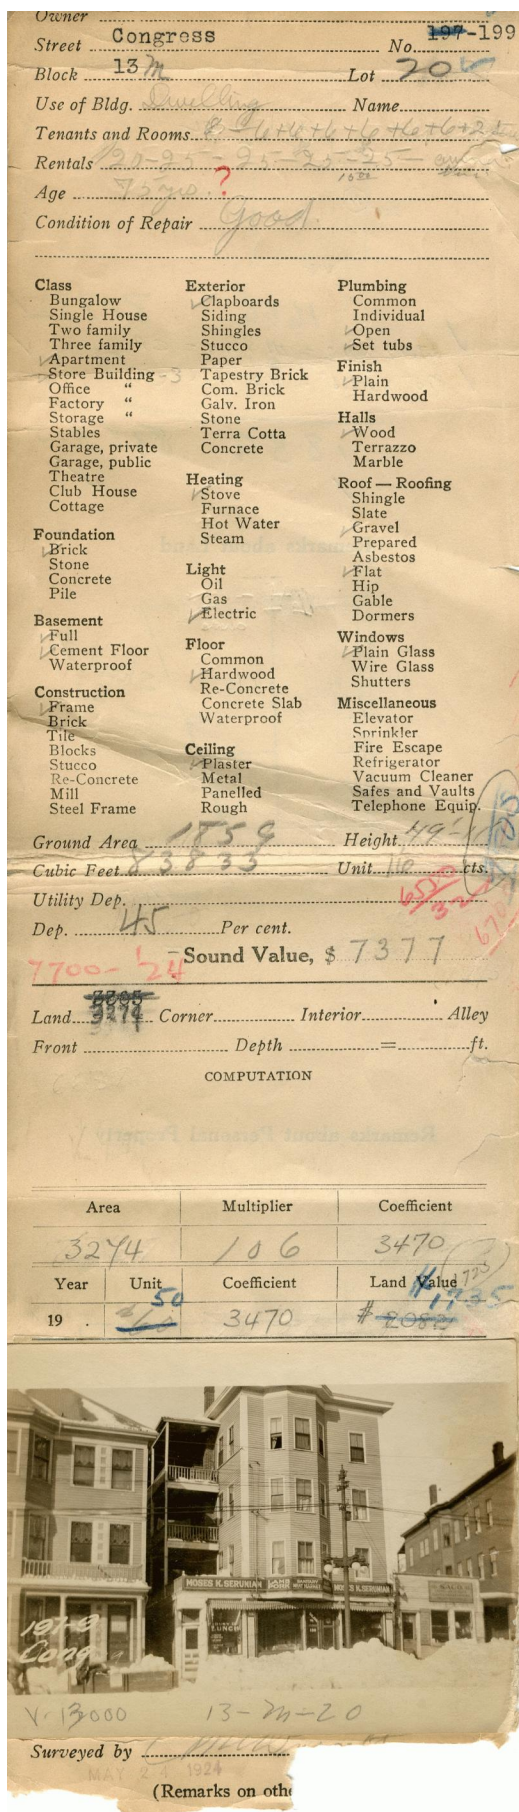 Owner
Street Congress No. 197-199
Block 13 M Lot 20
Use of Bldg. Dwelling Name
Tenants and Rooms 8-6+6+6+6+6+6+2
Rentals 25-25-25-25-25-
15.00
Age 75 yrs. ?
Condition of Repair Good.
Class
Bungalow
Single House
Two family
Three family
Apartment
Store Building - 3
Office "
Factory "
Storage "
Stables
Garage, private
Garage, public
Theatre
Club House
Cottage
Foundation
Brick
Stone
Concrete
Pile
Basement
Full
Cement Floor
Waterproof
Construction
Frame
Brick
Tile
Blocks
Stucco
Re-Concrete
Mill
Steel Frame
Exterior
Clapboards
Siding
Shingles
Stucco
Paper
Tapestry Brick
Com. Brick
Galv. Iron
Stone
Terra Cotta
Concrete
Heating
Stove
Furnace
Hot Water
Steam
Light
Oil
Gas
Electric
Floor
Common
Hardwood
Re-Concrete
Concrete Slab
Waterproof
Ceiling
Plaster
Metal
Panelled
Rough
Plumbing
Common
Individual
Open
Set tubs
Finish
Plain
Hardwood
Halls
Wood
Terrazzo
Marble
Roof — Roofing
Shingle
Slate
Gravel
Prepared
Asbestos
Flat
Hip
Gable
Dormers
Windows
Plain Glass
Wire Glass
Shutters
Miscellaneous
Elevator
Sprinkler
Fire Escape
Refrigerator
Vacuum Cleaner
Safes and Vaults
Telephone Equip.
Ground Area 1859 Height 49'
Cubic Feet 83833 Unit 16 cts.
Utility Dep.
Dep. 45 Per cent.
7700-'24 Sound Value, $ 7377
Land 3274 Corner Interior Alley
Front Depth = ft.
COMPUTATION
Area Multiplier Coefficient
3274 106 3470
Year Unit Coefficient Land Value
50 $1735 1725
19 . 60 3470 $ 2082
MOSES K. SERUNIAN LAMB PORK MOSES K. SERUNIAN
LUNCH
197-9
Cong
V-13000 13-M-20
Surveyed by
MAY 24 1924
(Remarks on othe